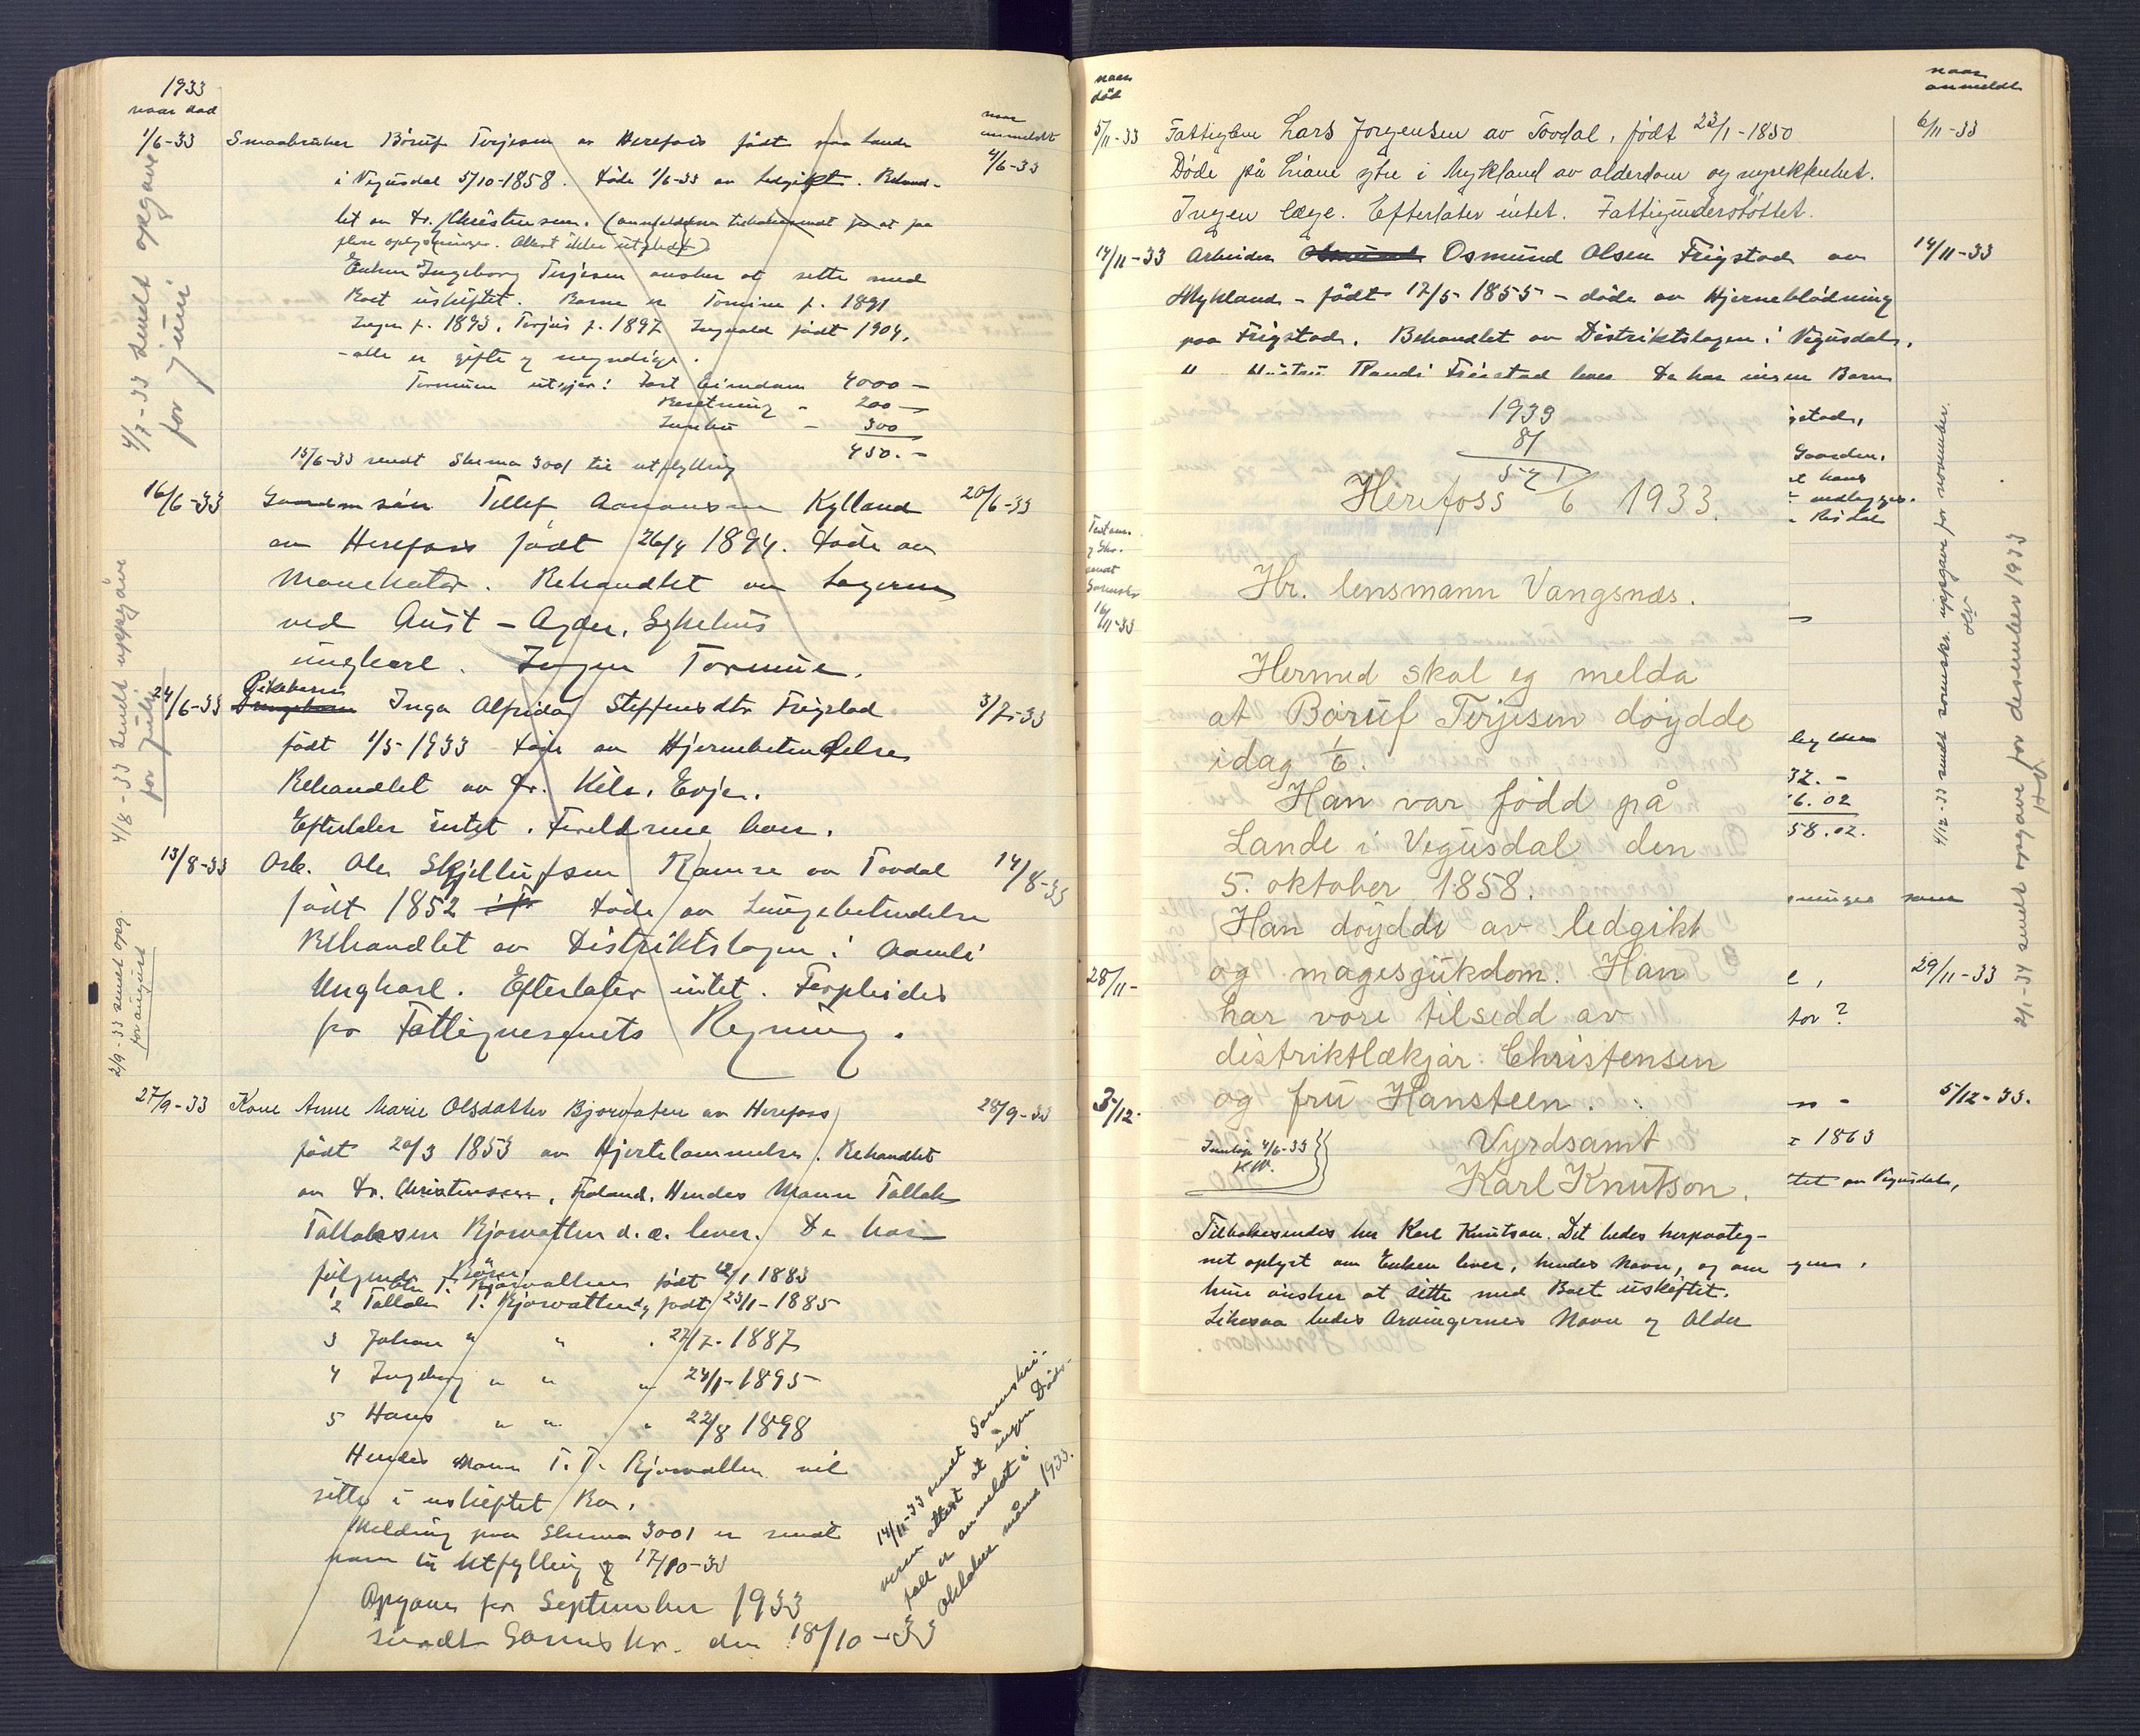 1933
naar død
naar anmeldt
1/6-33 Smaabruker Børuf Terjesen av Herefoss født paa Lande 4/6-33
i Vegusdal 5/10-1858. Døde 1/6-33 av Ledgikt. Behand-
let av Dr. Christensen.
flere oplysninger.
Enken Ingeborg Terjesen ønsker at sitte med
Boet uskiftet. Barna er Tomine f. 1891
Inga f. 1893, Terjus f. 1897 Ingvald født 1904,
- alle er gifte og myndige.
Formuen utgjør: Fast Eiendom 4000 -
Besetning - 200 -
Innbu - 300
450. -
15/6-33 sendt Skema 3001 til utfylling
16/6-33 Gaardm søn Tellef Aanonsen Kylland 20/6-33
av Herefoss født 26/4 1894. Døde av
Mavekatar. Behandlet av Lægerne
ved Aust-Agder, Sykehus
ungkarl. Ingen Formue.
24/6-33 Pikebarn Inga Alfrida Steffensdtr Frigstad 3/7-33
født 1/5-1933 døde av Hjernebetendelse
Behandlet av Dr. Kile, Evje.
Efterlater intet. Foreldrene lever.
13/8-33 Arb. Ole Skjellufsen Ramse av Tovdal 14/8-33
født 1852 døde av Lungebetendelse
Behandlet av Distriktslægen i Aamli
Ungkarl. Efterlater intet. Forpleides
for Fattigvesenets Regning.
27/9-33 Kone Anne Marie Olsdatter Bjorvaten av Herefoss 28/9-33
født 20/3 1853 av Hjertelammelse. Behandlet
av Dr. Christensen, Froland. Hendes Mann Tallak
Tallaksen Bjorvatten d.e. lever. De har
følgende Børn:
1 Ole T. Bjorvatten født 12/1 1883
2 Tallak T. Bjorvatten dy født 23/11-1885
3 Johan " " . 27/7-1887
4 Ingeborg " " " 24/1-1895
5 Hans " " " 22/8 1898
Hendes Mann T.T. Bjorvatten vil
sitte i uskiftet Bo.
Melding paa Skema 3001 er sendt
ham til Utfylling 17/10-33
Opgave for September 1933
sendt Sorenskr. den 18/10-33
14/11-33 sendt Sorenskri-
veren attest at ingen Døds-
fall er anmeldt i
oktober måned 1933.
4/7-33 sendt opgave
for juni
4/8-33 sendt uppgåve
for juli
2/9-33 sendt opg.
for august
naar død
naar anmeldt
5/11-33 Fattiglem Lars Jorgensen av Tovdal, født 23/1-1850 6/11-33
Døde på Liane ytre i Mykland av alderdom og svekkenhet.
Ingen læge. Efterlater intet. Fattigunderstøttet.
14/11-33 Arbeider Osmund Olsen Frigstad av 14/11-33
Mykland - født 17/5 1855 - døde av Hjerneblødning
paa Frigstad. Behandlet av Distriktslægen i Vegusdal.
Randi Frigstad lever De har ingen Barn
gstad,
Gaarden,
hans
- vedlegges.
Testam.
sendt
Sorenskr
16/11-33
1933
81
Herefoss 5/6 1933.
Hr. lensmann Vangsnæs.
Hermed skal eg melda
at Børuf Terjesen døydde
idag 1/6.
Han var fødd på
Lande i Vegusdal den
5. oktober 1858.
Han døydde av ledgikt
og magesjukdom. Han
har vore tilsedd av
distriktlækjar Christensen
og fru Hansteen.
Vyrdsamt
Karl Knutson.
Innløp 4/6-33
Tilbakesendes hr Karl Knutson. Det bedes herpaateg-
net oplyst om Enken lever, hendes Navn, og om
hun ønsker at sitte med Boet uskiftet.
Likesaa bedes Arvingernes Navn og Alder
32. -
16.02
58.02.
som
28/11- 29/11-33
tor?
3/12- 5/12-33.
1863
tet av Vegusdal,
4/12-33 sendt sorenskr. uppgave for november.
2/1-34 sendt opgave for desember 1933